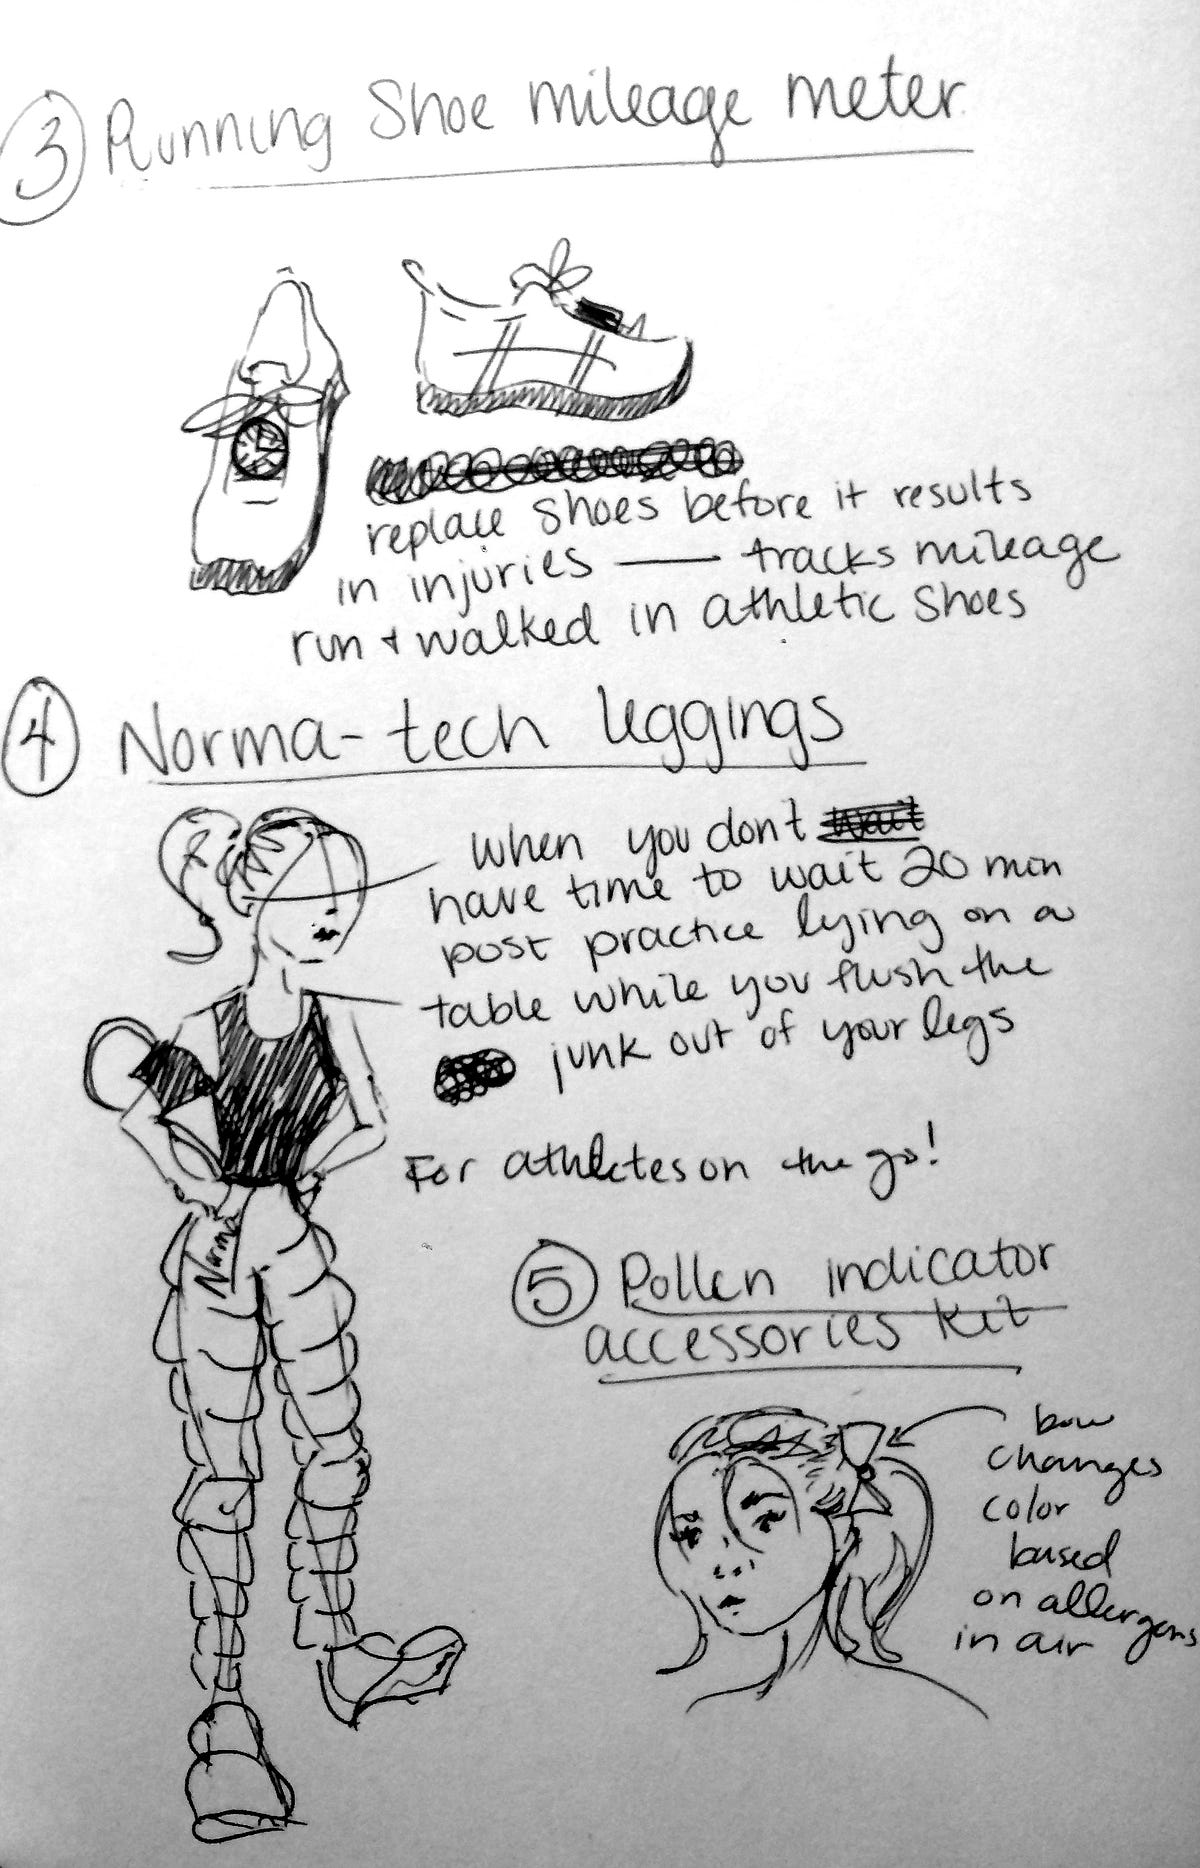 3 Running Shoe mileage meter
replace shoes before it results
in injuries — tracks mileage
run + walked in athletic shoes
4 Norma-tech leggings
when you dont wait
have time to wait 20 min
post practice lying on a
table while you flush the
junk out of your legs
For athletes on the go!
Norma
5 Pollen indicator
accessories kit
bow
changes
color
based
on allergens
in air